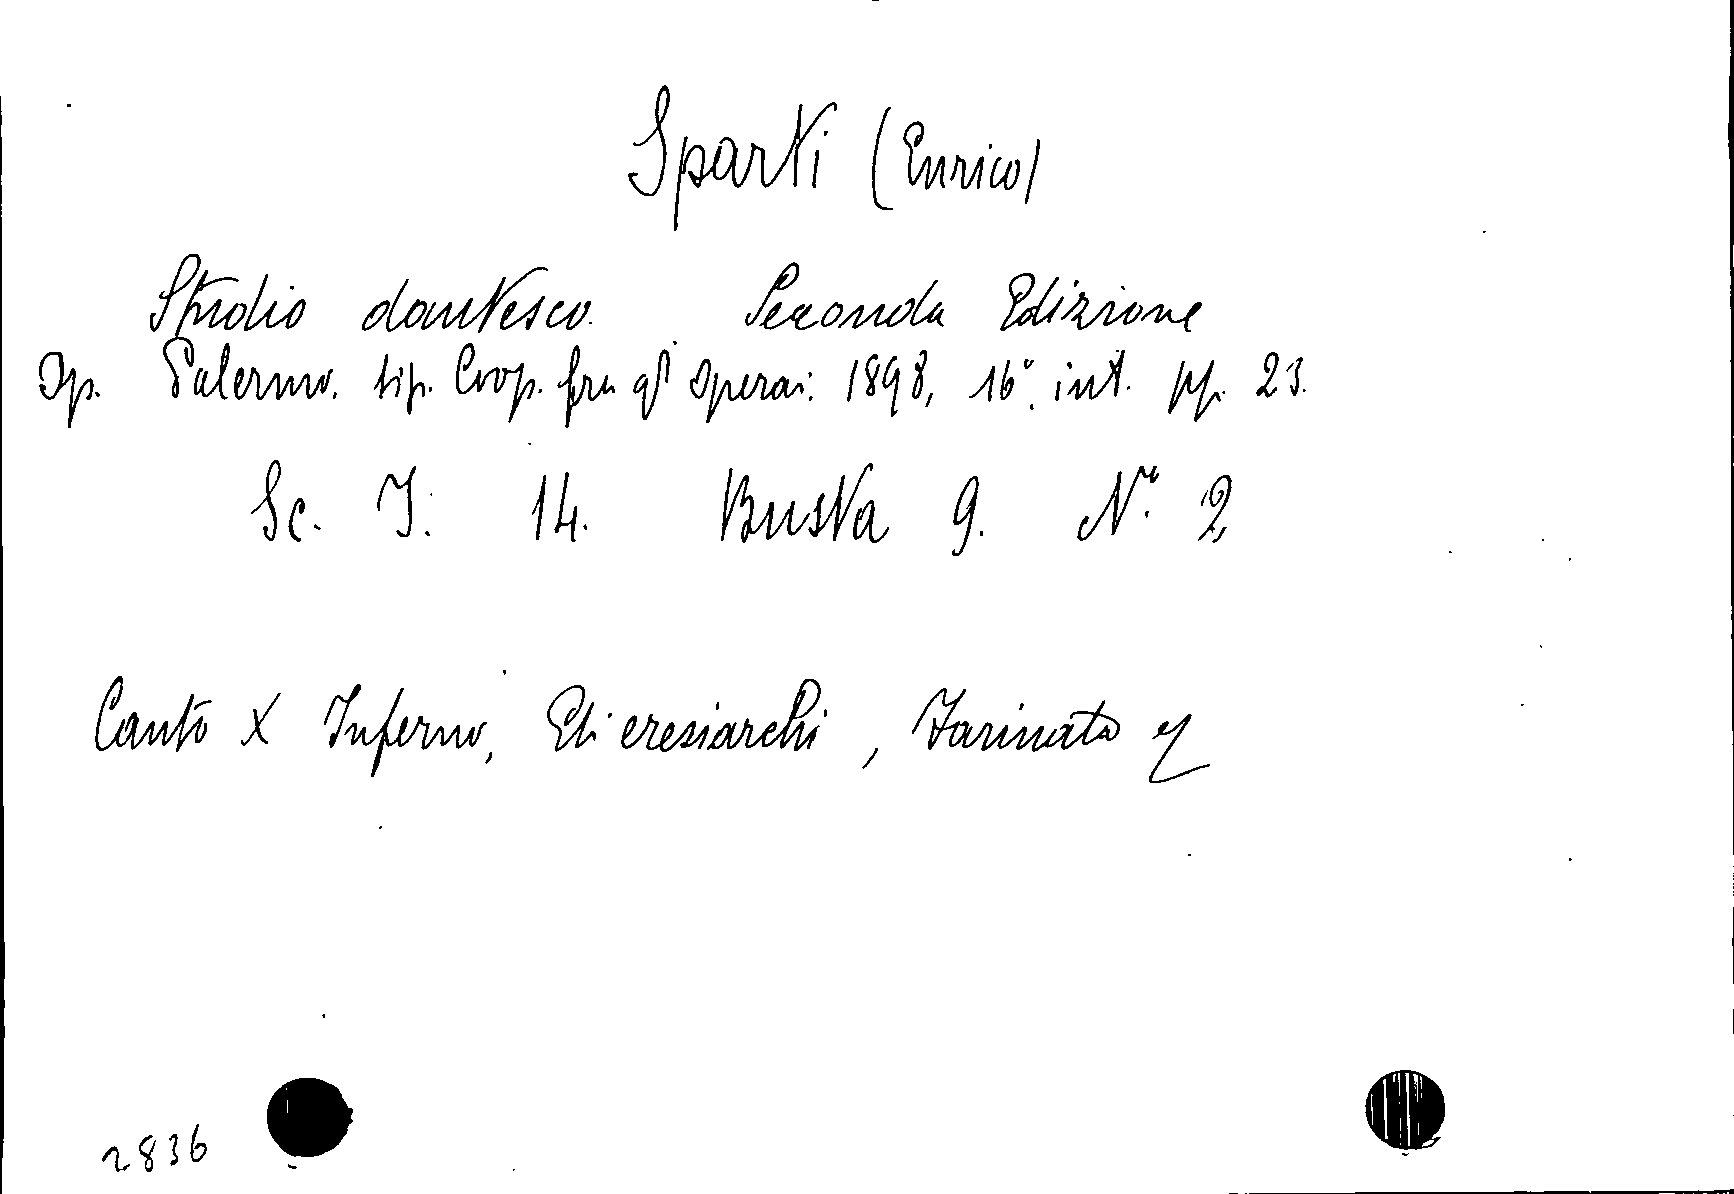 Sparti (Enrico)
Studio dantesco. Seconda Edizione
Op. Palermo. tip. Coop. fra gl' operai. 1898, 16°. int. pp. 23.
Sc. I. 14. Busta 9. N.° 2
Canto X Inferno, Gli eresiarchi, Farinata
2836